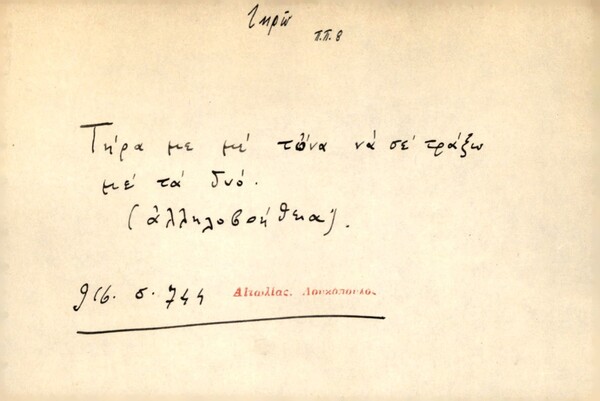 τηρῶ
π.π. 8
Τήρα με μέ τὤνα νά σέ τράξω
μέ τά δυό.
(ἀλληλοβοήθεια).
916. σ. 744 Αἰτωλίας. Λουκόπουλος